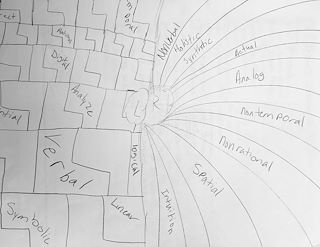 Digital
Analyze
Verbal
Symbolic
Linear
Logical
L
R
Nonverbal
Holistic
Synthetic
Actual
Analog
Nontemporal
Nonrational
Spatial
Intuition